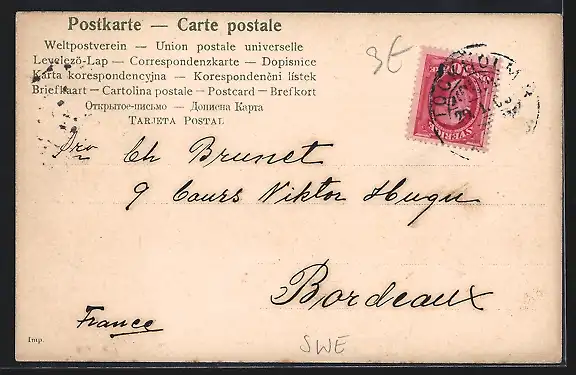 Postkarte — Carte postale
Weltpostverein — Union postale universelle
Levelezö-Lap — Correspondenzkarte — Dopisnice
Karta korespondencyjna — Korespondenční lístek
Briefkaart — Cartolina postale — Postcard — Brefkort
Открытое-письмо — Дописна Карта
TARJETA POSTAL
SE
Dro Ch Brunet
9 Cours Viktor Hugu
Bordeaux
France
Imp.
SWE